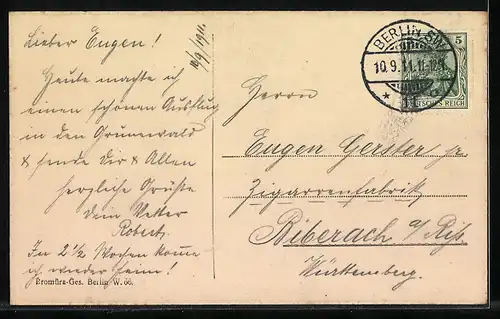 Lieber Eugen!
10/9 1911.
Heute machte ich
einen schönen Ausflug
in den Grunewald
& sende dir & Allen
herzliche Grüße
dein Vetter
Robert.
In 2 1/2 Wochen komme
ich wieder heim!
Bromüra-Ges. Berlin W. 66.
BERLIN SW
10.9.11.11-12V.
5
DEUTSCHES REICH
Herrn
Eugen Gerster jr.
Zigarrenfabrik
Biberach a/Riß.
Württemberg.